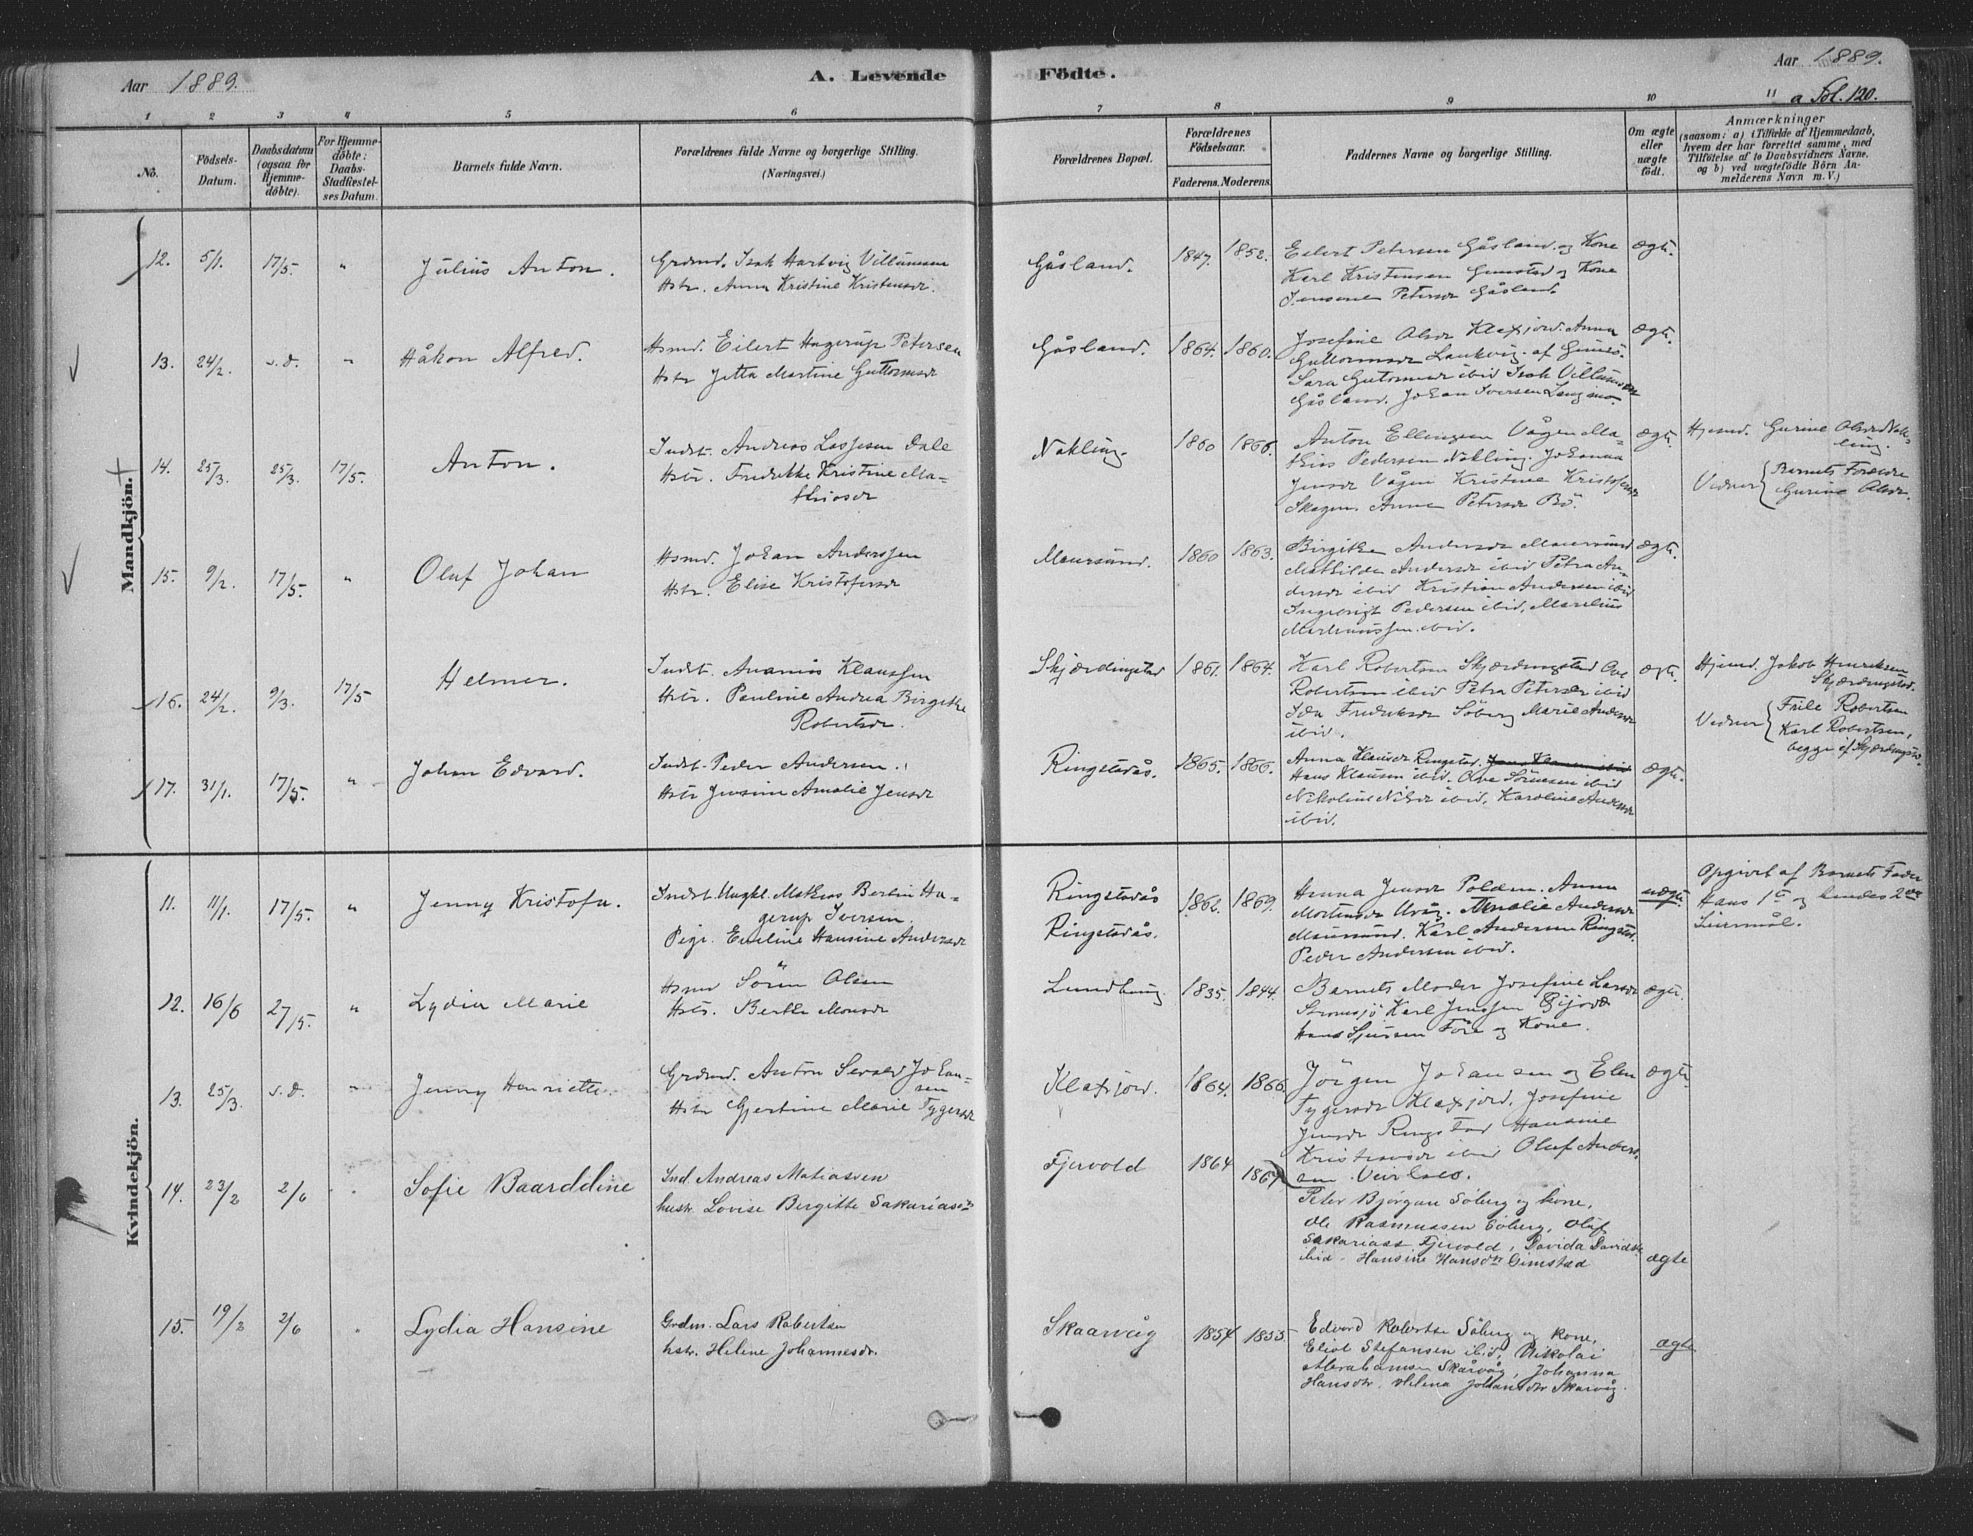 Aar 1889.
A. Levende
Födte.
Aar 1889.
a Fol. 120.
1 2 3 4 5 6 7 8 9 10 11
No.
Födsels-Datum.
Daabsdatum (ogsaa for Hjemme-döbte).
For Hjemme-döbte: Daabs-Stadfæstel-ses Datum.
Barnets fulde Navn.
Forældrenes fulde Navne og borgerlige Stilling.
(Næringsvei.)
Forældrenes Bopæl.
Forældrenes Födselsaar.
Faderens. Moderens.
Faddernes Navne og borgerlige Stilling.
Om ægte eller uægte födt.
Anmærkninger
(saasom: a) i Tilfælde af Hjemmedaab,
hvem der har forrettet samme, med
Tilföielse af to Daabsvidners Navne.
og b) ved uægtefödte Börn An-
melderens Navn m. V.)
Mandkjön.
12. 5/1. 17/5. " Julius Anton. Grdmd. Isak Hartvig Villumsen Gåsland. 1847. 1852. Eilert Petersen Gåsland og Kone ægte.
Hstr. Anna Kristine Kristensdr. Karl Kristensen Gimstad og Kone
Jensine Petersdr Gåsland.
13. 24/2. s.d. " Håkon Alfred. Hsmd. Eilert Hagerup Petersen Gåsland. 1864. 1860. Josefine Olsdr Klaxjord. Anna ægte.
Hstr Jetta Martine Guttormsdr Guttormsdr Laukvig af Gimsö.
Sara Gutormsdr ibid Isak Villumsen
Gåsland. Johan Iversen
14. 25/3. 25/3. 17/5. Anton. Indst. Andreas Dale Nakling. 1860 1866. Anton Ellingsen Vågen Ma- ægte. Hjemd. Gurine Olsdr Nak-
ling.
Hstr. Fredrikke Kristine Ma- thias Pedersen Nakling. Johanna
thiasdr Jensdr Vågen Kristine Kristofersdr Vidner { Barnets Foreldre
Skagen. Anne Petersdr Bö. Gurine Olsdr.
15. 9/2. 17/5. " Oluf Johan Hsmd. Johan Anderssen Maursund. 1860 1863. Birgithe Andersdr Maursund ægte.
Hstr. Elise Kristofersdr Mathilde Andersdr ibid Petra An-
dersdr ibid Kristian Andersen ibid
Ingebrigt Pedersen ibid, Marelius
Martinussen ibid.
16. 24/2. 9/3. 17/5 Helmer. Indst. Ananias Klaussen Skjærdingstad 1861. 1864. Karl Robertsen Skjærdingstad Ove ægte. Hjemd. Jakob Henriksen
Skjærdingstad.
Hstr. Pauline Andrea Birgithe Robertsen ibid Petra Petersdr ibid
Robertsdr. Ida Fredriksdr Söberg Marie Andersdr Vidner { Robertsen
ibid. Karl Robertsen,
begge af Skjærdingstad.
17. 31/1. 17/5. " Johan Edvard. Indst. Peder Andersen. Ringstadås. 1865. 1866. Anna Klausdr Ringstad. ægte.
Hstr Jensine Amalie Jensdr Hans Klausen ibid. Ove Sörensen ibid
Nikoline Nilsdr ibid, Karoline Andersdr
ibid.
Kvindekjön.
11. 11/1. 17/5. " Jenny Kristofa. Indst. Ungkl. Mathias Bertin Ha- Ringstadås 1862. 1869. Hanna Jensdr Polden. Anna uægte. Opgivet af Barnets Fader
gerup Iversen. Mortensdr. Amalie Andersdr Hans 1te og hendes 2det
Pige. Emeline Hansine Andersdr Ringstadås. Maursund. Karl Andersen Ringstad. Leiermål.
Peder Andersen ibid.
12. 16/6 27/5. " Lydia Marie Hsmd Sören Olsen 1835. 1844. Barnets Moder Josefine Larsdr ægte.
Hstr. Berthe Monsdr Karl Jenssen
Hans Sjursen Före og Kone.
13. 25/3. s.d. " Jenny Henriette. Grdmd. Anton Sevald Johan- Klaxjord. 1864. 1866. Jörgen Johansen og Elen ægte
sen Tygersdr Klaxjord. Josefine
Hstr Gjertine Marie Tygersdr Jensdr Ringstad Hansine
Kristensdr ibid Oluf Anders-
sen
14. 23/2 2/6 " Sofie Baarddine Ind. Andreas Matiassen Fjervold 1864 1864 Peter Björgan Söberg og kone,
hustr. Lovise Bergitte Sakariasdr Ole Rasmussen Söberg, Oluf
Sakariass Fjervold, Davida Davidsdr
ibid. Hansine Hansdtr Gimstad ægte
15. 19/2 2/6 " Lydia Hansine Grdm. Lars Robertsen Skaarvåg 1854 1855 Edvard Robertse Söberg og kone, ægte
hstr. Helene Johannesdr. Eliot Stefansen ibid, Nikolai
Abrahamsen Skårvåg, Johanna
Hansdtr, Helena Johansdtr Skarvåg.